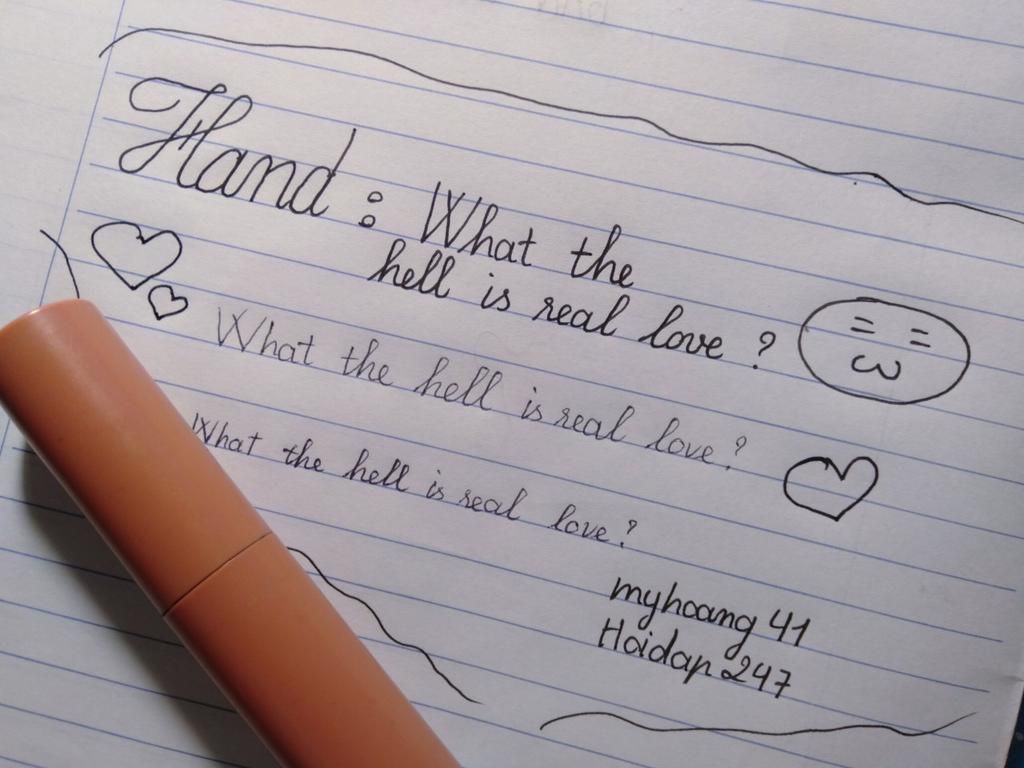 Hand : What the
hell is real love ?
What the hell is real love?
What the hell is real love?
myhoang 41
Hoidap 247